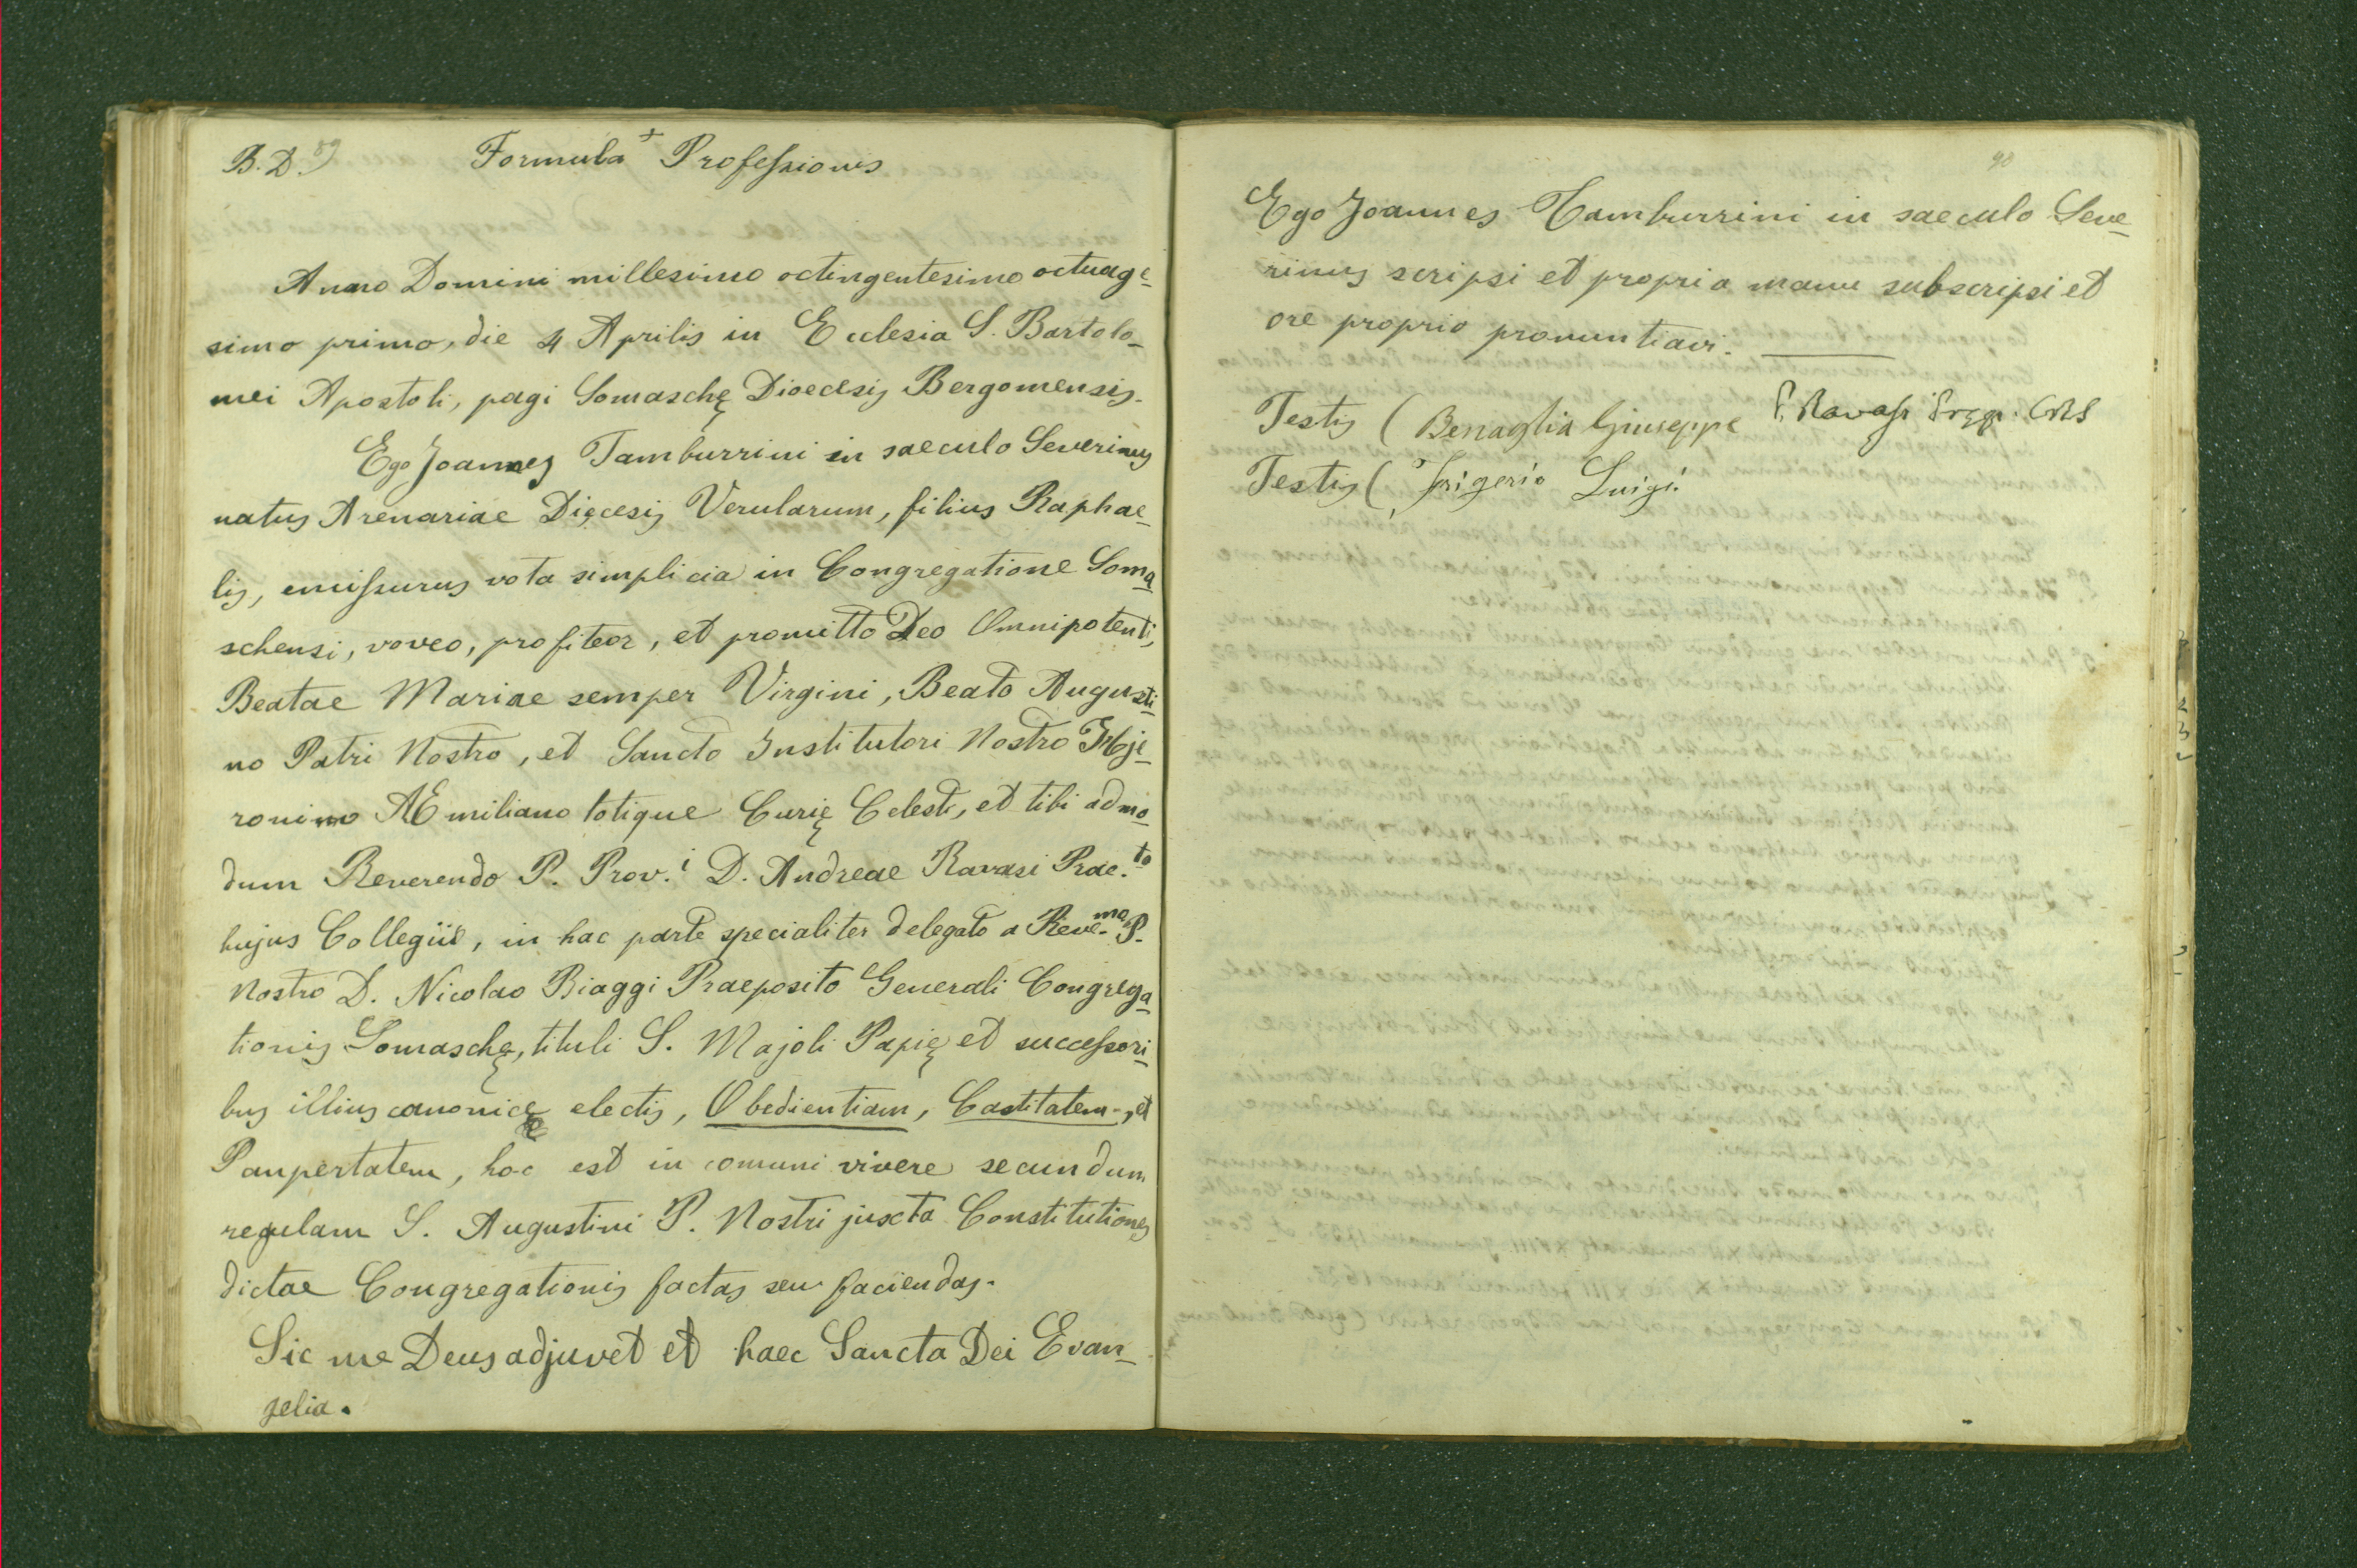 B.D. 89
+
Formula Professionis
Anno Domini millesimo octingentesimo octuage-
simo primo, die 4 Aprilis in Ecclesia S. Bartolo-
mei Apostoli, pagi Somaschę Dioecesis Bergomensis.
Ego Joannes Tamburrini in saeculo Severinus
natus Arenariae Dięcesis Verularum, filius Raphae-
lis, emissurus vota simplicia in Congregatione Soma-
schensi, voveo, profiteor, et promitto Deo Omnipotenti,
Beatae Mariae semper Virgini, Beato Augusti-
no Patri Nostro, et Sancto Institutori Nostro Hje-
ronimo AEmiliano totique Curię Celesti, et tibi admo-
dum Reverendo P. Prov.i D. Andreae Ravasi Prae.to
hujus Collegii, in hac parte specialiter delegato a Reve.mo P.
Nostro D. Nicolao Biaggi Praeposito Generali Congrega-
tionis Somaschę, tituli S. Majoli Papię et successori-
bus illius canonicę electis, Obedientiam, Castitatem, et
Paupertatem, hoc est in comuni vivere secundum
regulam S. Augustini P. Nostri juxta Constitutiones
dictae Congregationis factas seu faciendas.
Sic me Deus adjuvet et haec Sancta Dei Evan-
gelia.
90
Ego Joannes Tamburrini in saeculo Seve-
rinus scripsi et propria manu subscripsi et
ore proprio pronuntiavi.
P. Ravasi Pręp. CRS
Testis ( Benaglia Giuseppe
Testis ( Frigerio Luigi